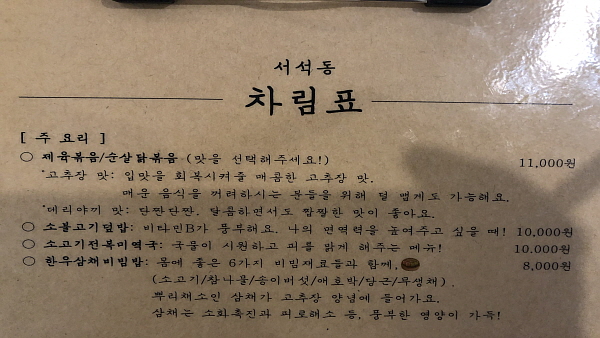 서석동
차림표
[ 주 요리 ]
○ 제육볶음/순살닭볶음 (맛을 선택해주세요!) 11,000원
*고추장 맛: 입맛을 회복시켜줄 매콤한 고추장 맛.
매운 음식을 꺼려하시는 분들을 위해 덜 맵게도 가능해요.
*데리야끼 맛: 단짠단짠. 달콤하면서도 짭짤한 맛이 좋아요.
○ 소불고기덮밥: 비타민B가 풍부해요. 나의 면역력을 높여주고 싶을 때! 10,000원
○ 소고기전복미역국: 국물이 시원하고 피를 맑게 해주는 메뉴! 10,000원
○ 한우삼채비빔밥: 몸에 좋은 6가지 비빔재료들과 함께, 8,000원
(소고기/참나물/송이버섯/애호박/당근/무생채).
뿌리채소인 삼채가 고추장 양념에 들어가요.
삼채는 소화촉진과 피로해소 등, 풍부한 영양이 가득!